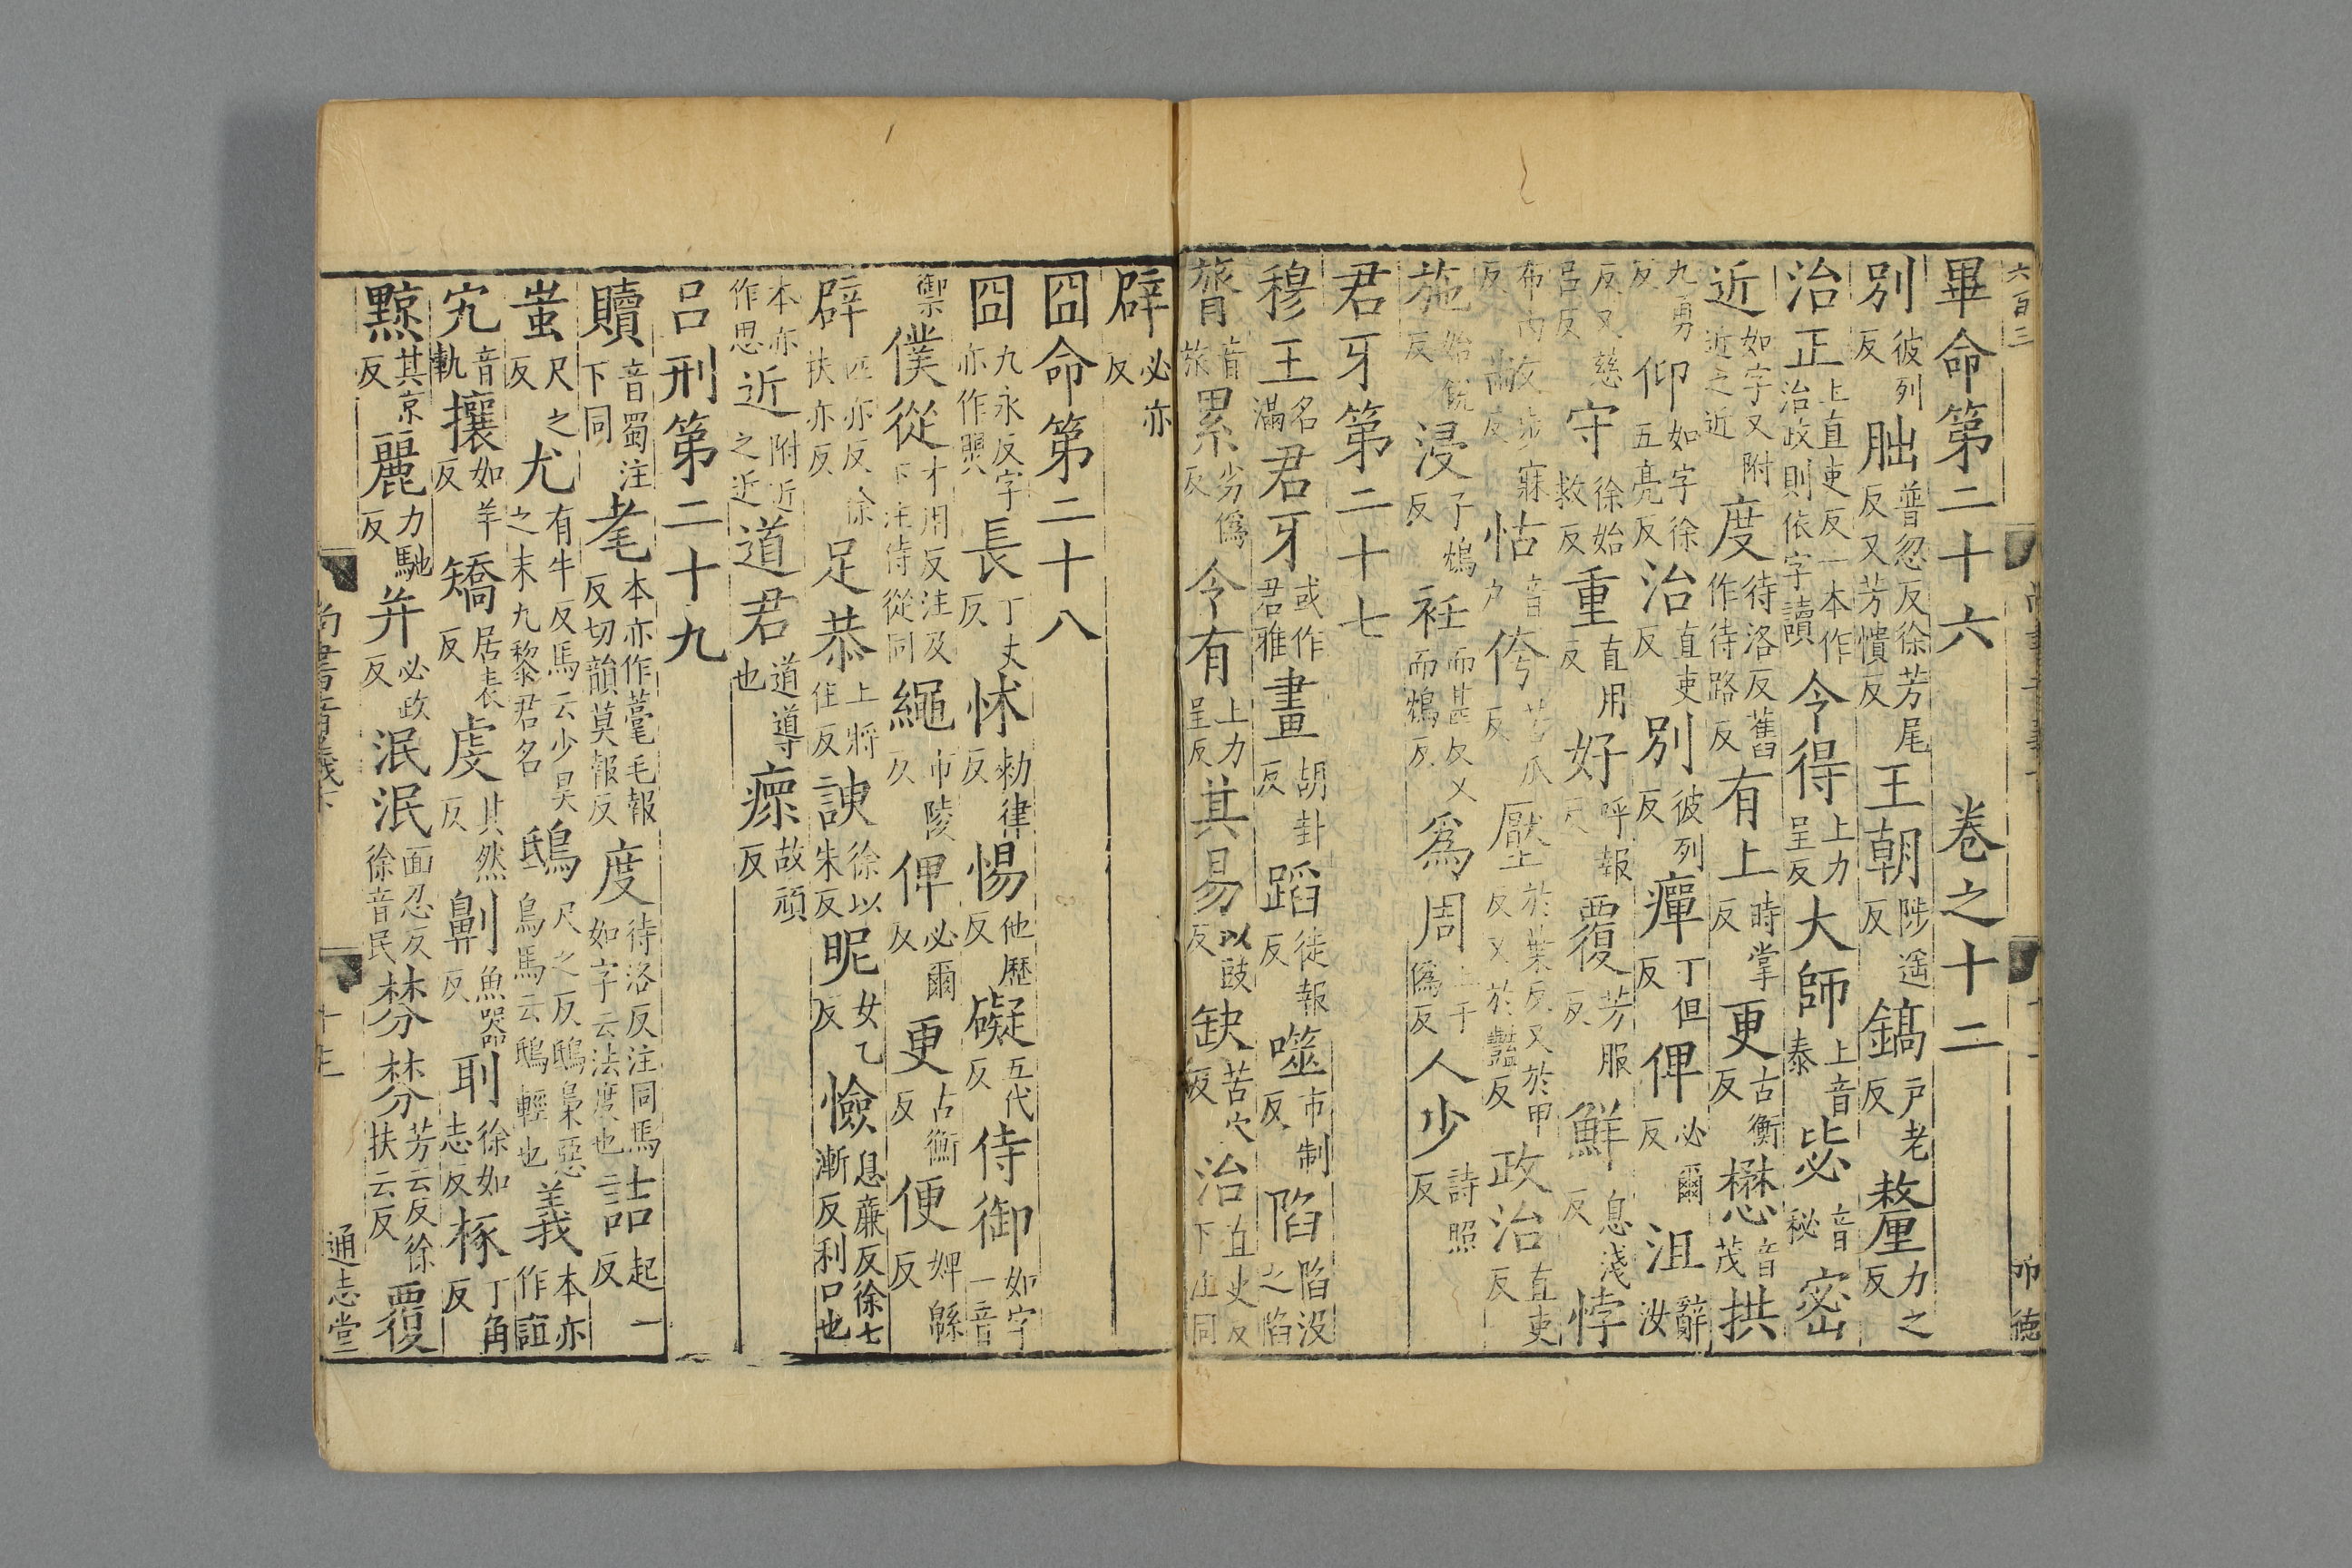 六百三
畢命第二十六 卷之十二
別彼列反 朏普忍反徐芳尾反又芳憒反 王朝陟遥反 鎬戸老反 釐力之反
治正上直吏反一本作治政則依字讀 令得上力呈反 大師上音泰 毖音秘 密
近如字又附近之近 度待洛反舊作待路反 有上時掌反 更古衡反 懋音茂 拱
九勇反 仰如字徐五亮反 治直吏反 別彼列反 癉丁但反 俾必爾反 沮辭汝
反又慈呂反 守徐始救反 重直用反 好呼報反 覆芳服反 鮮息淺反 悖
布内反 敝步寐反 怙音戸 侉苦瓜反 壓於葉反又於甲反又於豔反 政治直吏反
施始豉反 浸子鴆反 衽而甚反又而鴆反 爲周上于僞反 人少詩照反
君牙第二十七
穆王名滿 君牙或作君雅 畫胡卦反 蹈徒報反 噬市制反 陷陷没之陷
膂音旅 累劣僞反 令有上力呈反 其易以豉反 缺苦穴反 治直吏反下注同
辟必亦反
囧命第二十八
囧九永反字亦作煛 長丁丈反 怵勑律反 惕他歷反 礙五代反 侍御如字一音
禦 僕從才用反注及下注侍從同 繩市陵反 俾必爾反 更古衡反 便婢緜反
辟匹亦反徐扶亦反 足恭上將住反 諛徐以朱反 昵女乙反 憸息廉反徐七漸反利口也
本亦作思 近附近之近 道君道導也 瘝故頑反
呂刑第二十九
贖音蜀注下同 耄本亦作薹毛報反切韻莫報反 度待洛反注同馬如字云法度也 詰起一反
蚩尺之反 尤有牛反馬云少昊之末九黎君名 鴟尺之反鴟梟惡鳥馬云鴟輕也 義本亦作誼
宄音軌 攘如羊反 矯居表反 虔其然反 劓魚器反 刵徐如志反 椓丁角反
黥其京反 麗力馳反 并必政反 泯泯面忍反徐音民 棼棼芳云反徐扶云反 覆
尚書音義下
通志堂